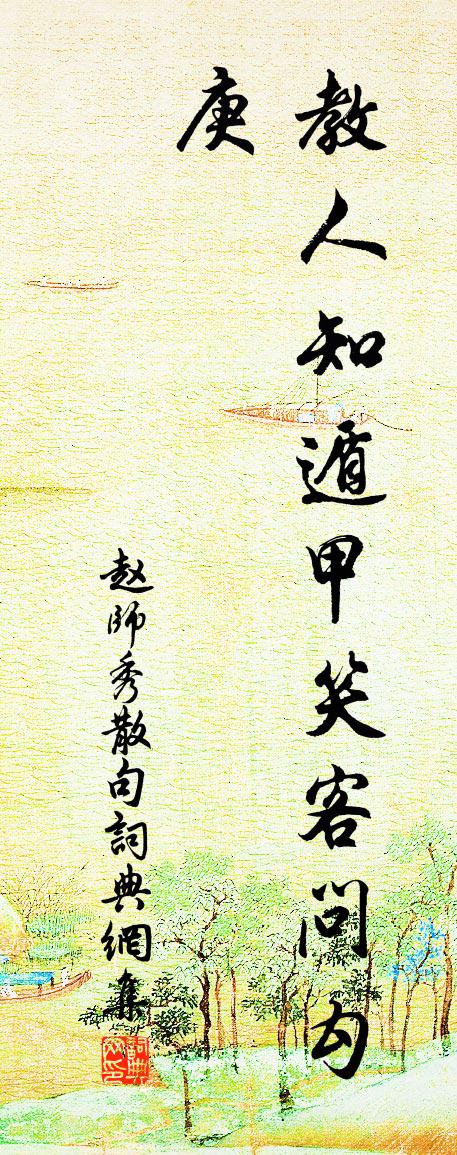 教人知遁甲笑客問勾
庚
赵師秀散句詞典網集